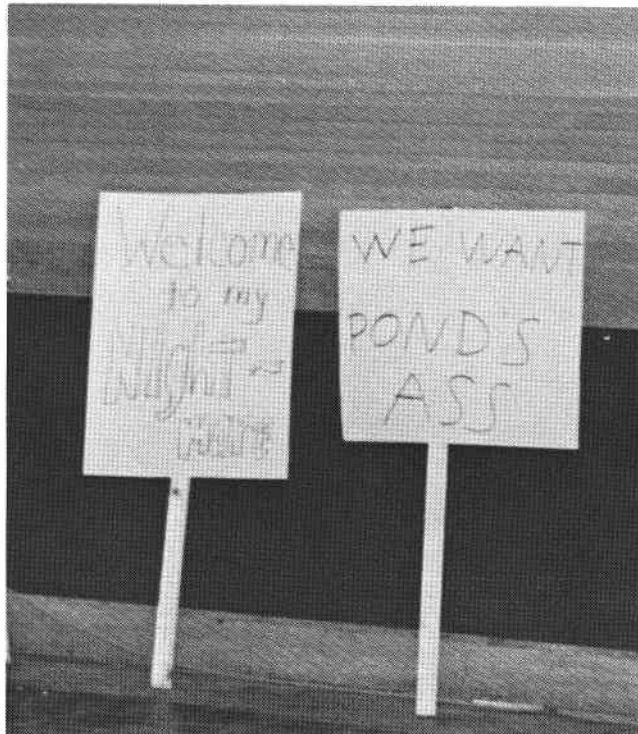 Welcome
to my
Night~
mare
WE WANT
POND'S
ASS